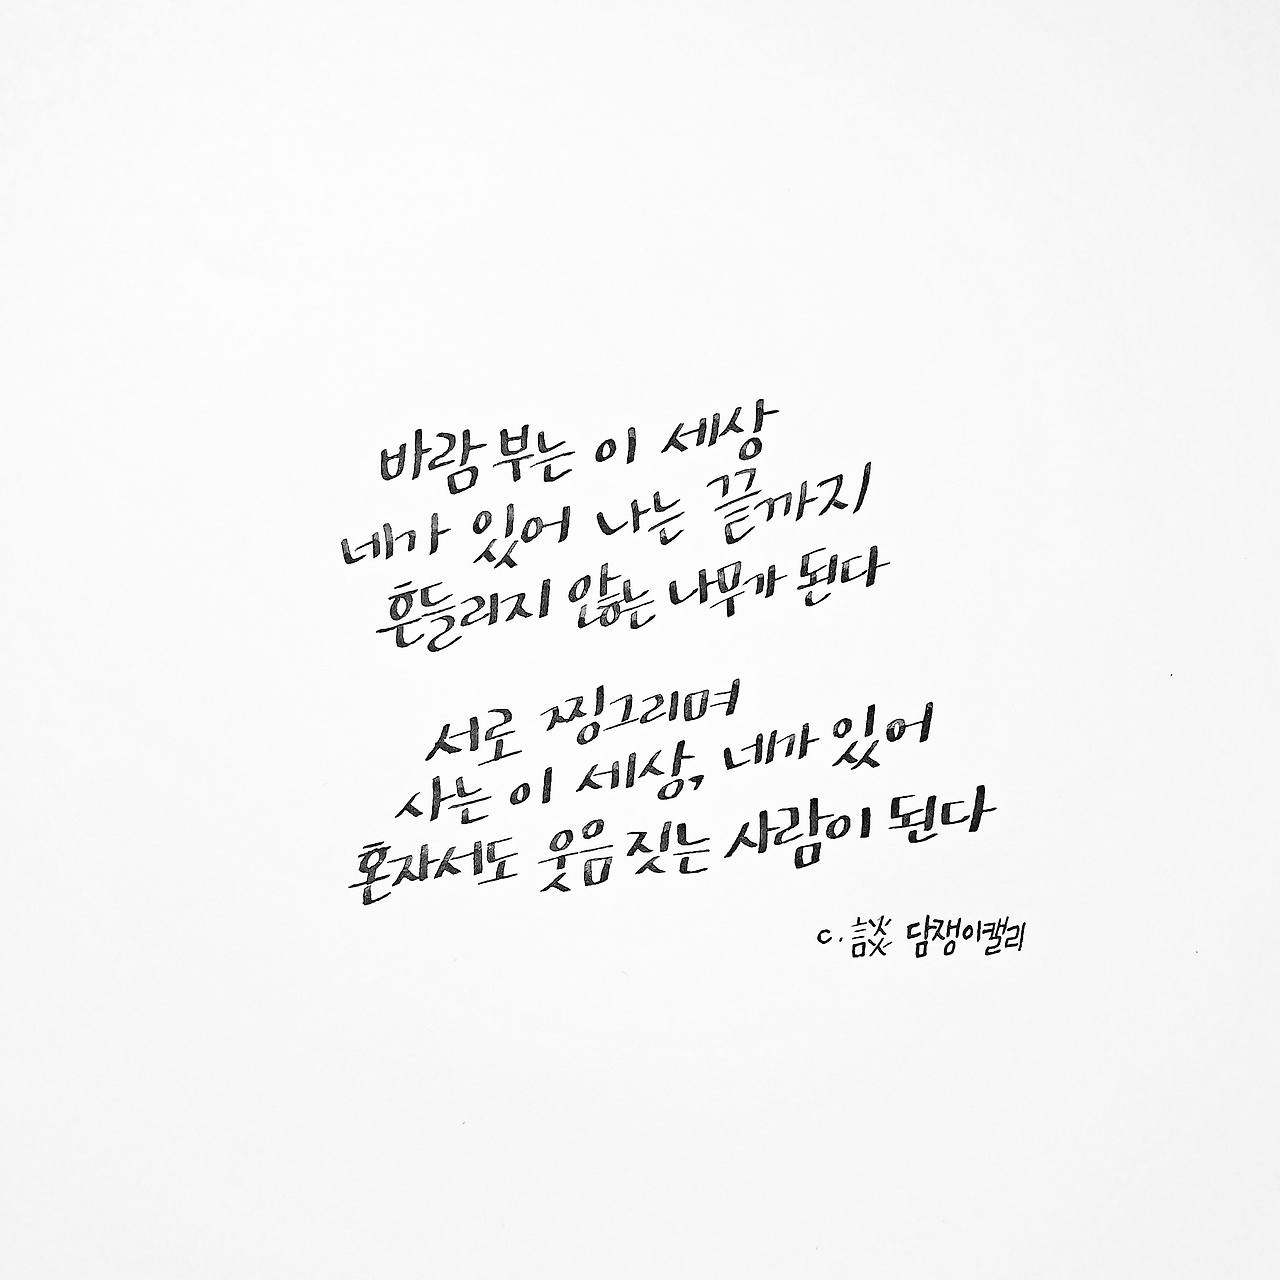 바람 부는 이 세상
네가 있어 나는 끝까지
흔들리지 않는 나무가 된다
서로 찡그리며
사는 이 세상, 네가 있어
혼자서도 웃음 짓는 사람이 된다
c. 談 담쟁이캘리